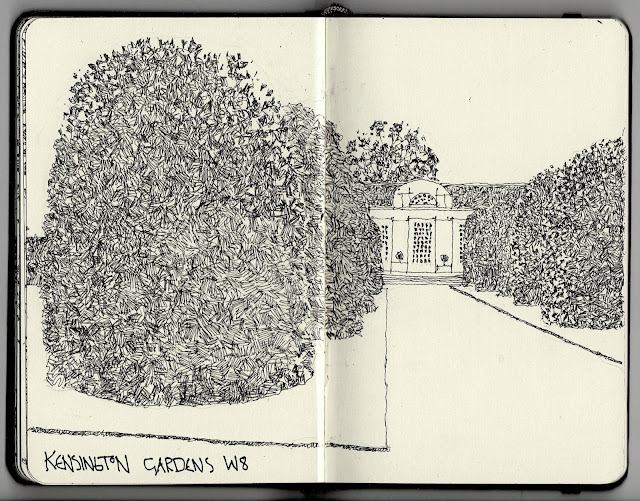 KENSINGTON GARDENS W8